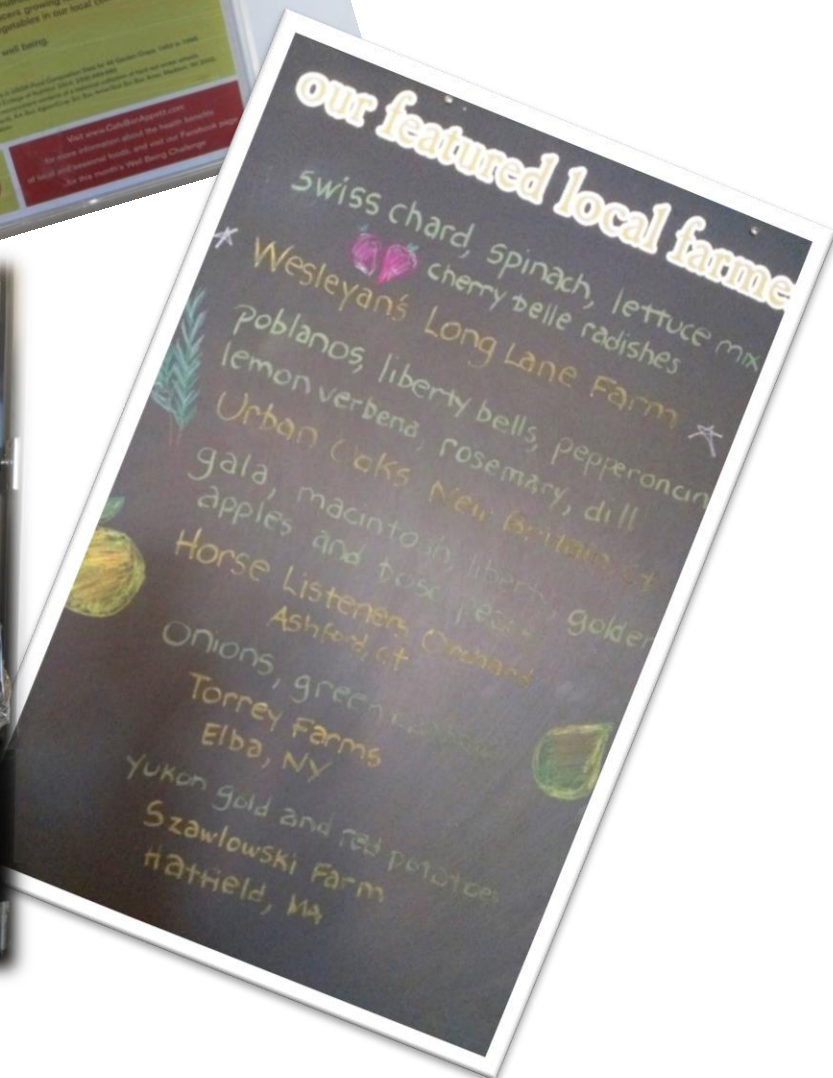 well being.
Visit www.CafeBonAppetit.com
for more information about the health benefits
of local and seasonal foods, and visit our Facebook page
for this month's Well Being Challenge
our featured local farme
swiss chard, spinach, lettuce mix
cherry belle radishes
Wesleyan's Long Lane Farm
poblanos, liberty bells, pepperoncin
lemon verbena, rosemary, dill
Urban Oaks New Britain, ct
gala, macintosh, liberty, golden
apples and bosc pears
Horse Listeners Orchard
Ashford, ct
Onions, green
Torrey Farms
Elba, NY
yukon gold and red potatoes
Szawlowski Farm
Hatfield, MA